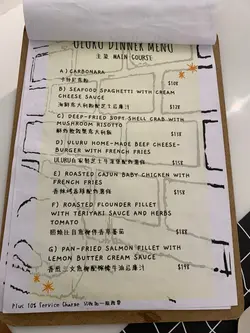 ULURU DINNER MENU
主菜 MAIN COURSE
A) CARBONARA
$118
B) SEAFOOD SPAGHETTI WITH CREAM CHEESE SAUCE
海鮮意大利粉配芝士忌廉汁
$128
C) DEEP-FRIED SOFT-SHELL CRAB WITH MUSHROOM RISOTTO
$138
D) ULURU HOME-MADE BEEF CHEESE-
BURGER WITH FRENCH FRIES
ULURU自家製芝士牛漢堡配炸薯條
E) ROASTED CAJUN BABY CHICKEN WITH
FRENCH FRIES
香辣烤春雞配炸薯條
F) ROASTED FLOUNDER FILLET
WITH TERIYAKI SAUCE AND HERBS
TOMATO
G) PAN-FRIED SALMON FILLET WITH
LEMON BUTTER CREAM SAUCE
香煎三文魚柳配檸檬牛油忌廉汁
Plus 10% Service Charge 另收加一服務費